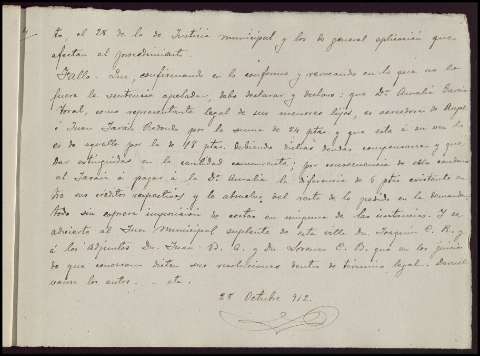 to, el 28 de la de Justicia municipal y los de general aplicación que
afectan al procedimiento.
Fallo: Que, confirmando en lo conforme y revocando en lo que no lo
fuere la sentencia apelada, debo declarar y declaro: que Dª Amalia García
Toral, como representante legal de sus menores hijos, es acreedora de
á Juan Farán Redondo por la suma de 54 ptas y que esta á su vez lo
es de aquello por la de 48 ptas. debiendo dichas deudas compensarse y que
dar extinguidas en la cantidad concurrente; por consecuencia de ello condeno
al Farán á pagar á la Dª Amalia la diferencia de 6 ptas existente en
tre sus créditos respectivos y lo absuelvo del resto de lo pedido en la demanda
todo sin expresa imposición de costas en ninguna de las instancias. Y se
advierte al Juez Municipal suplente de esta villa Dn. Joaquín C. R. y
á los Adjuntos Dn. Juan Bd. G. y Dn. Lorenzo C. B. que en los juicios
de que conozcan dicten sus resoluciones dentro de término legal. Devuél
vanse los autos. - etc.
28 Octubre 912.